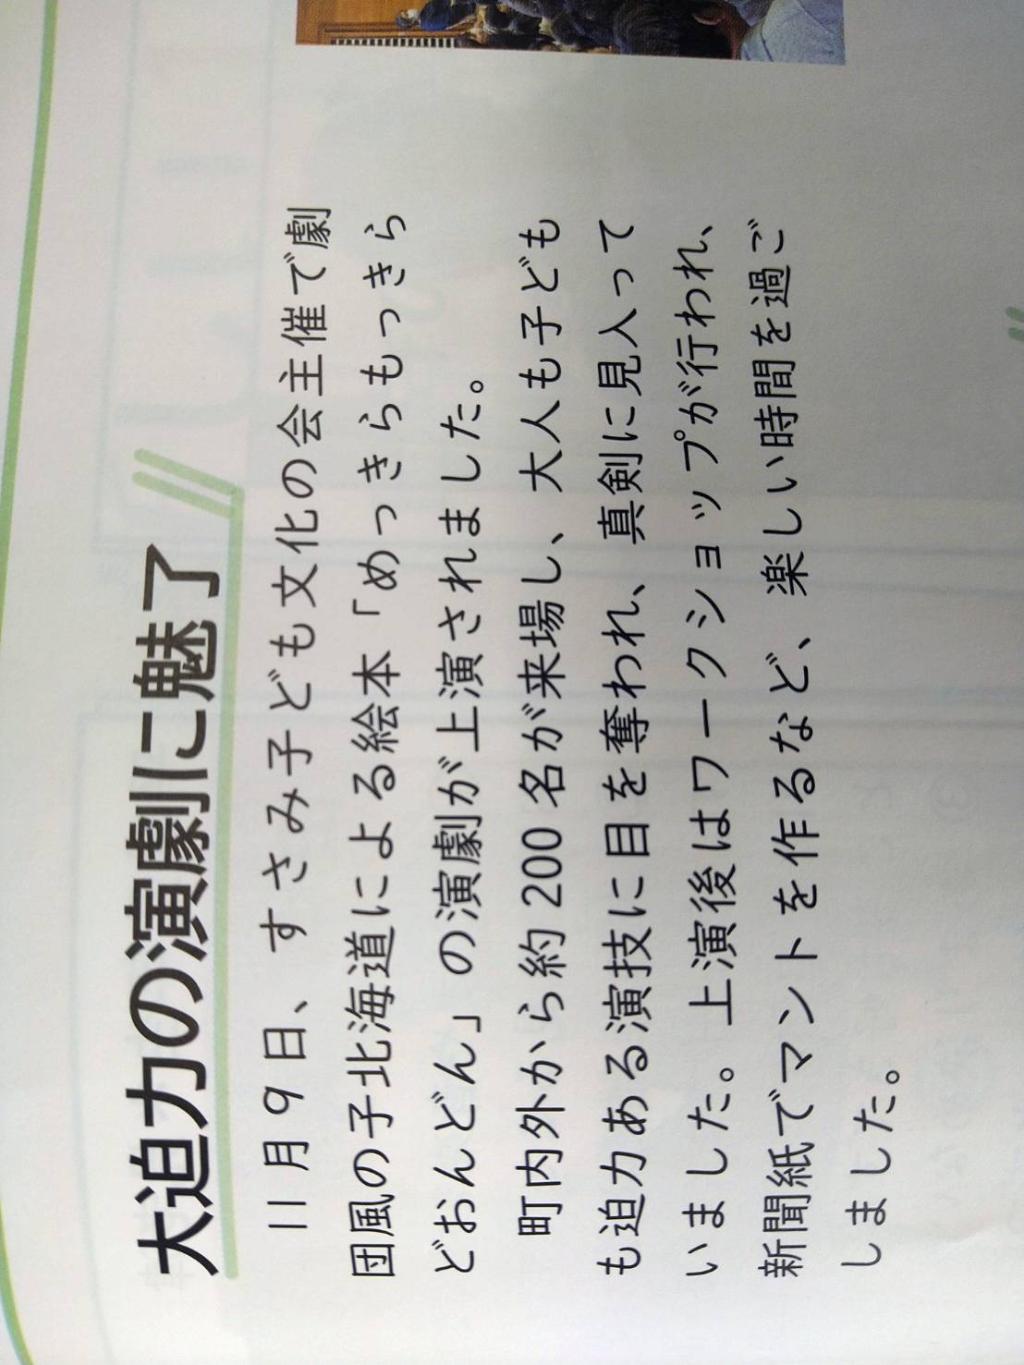 大迫力の演劇に魅了
11月9日、すさみ子ども文化の会主催で劇
団風の子北海道による絵本「めっきらもっきら
どおんどん」の演劇が上演されました。
町内外から約200名が来場し、大人も子ども
も迫力ある演技に目を奪われ、真剣に見入って
いました。上演後はワークショップが行われ、
新聞紙でマントを作るなど、楽しい時間を過ご
しました。